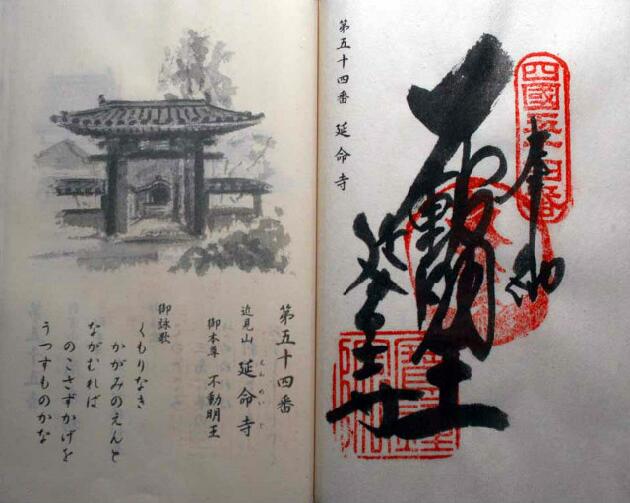 第五十四番 延命寺
四國五十四番
奉納
不動明王
延命寺
第五十四番
近見山 延命寺
えんめいじ
御本尊 不動明王
御詠歌
くもりなき
かがみのえんと
ながむれば
のこさずかげを
うつすものかな